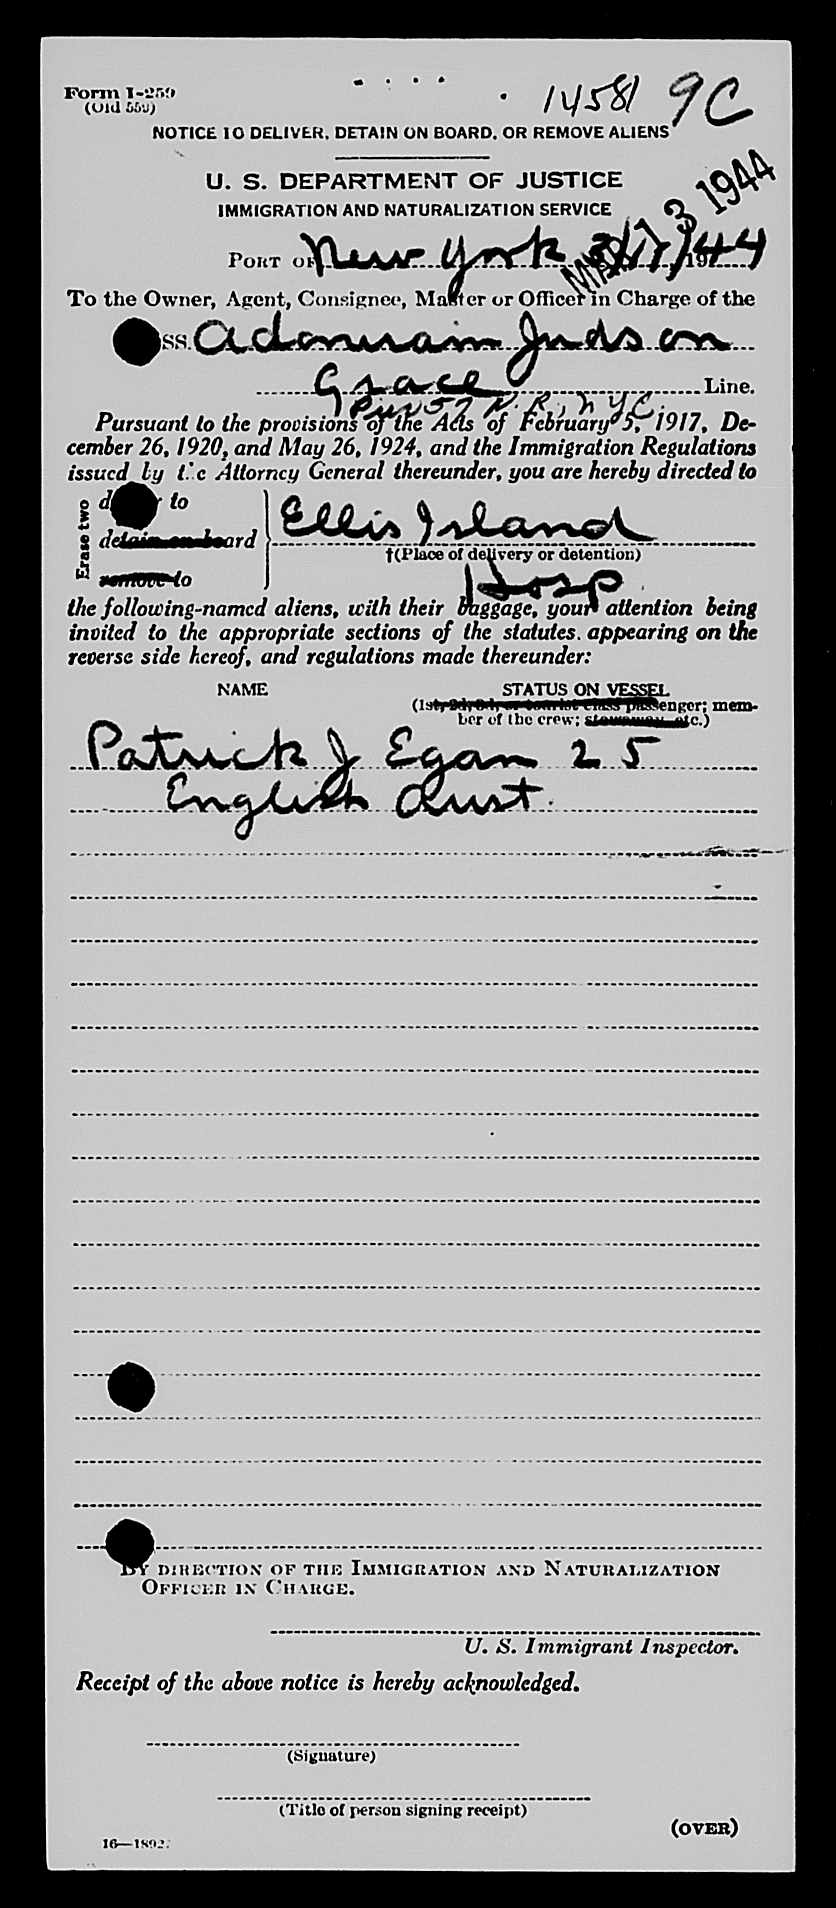 Form I-259
(Old 559)
14581 9C
NOTICE TO DELIVER, DETAIN ON BOARD, OR REMOVE ALIENS
U. S. DEPARTMENT OF JUSTICE
IMMIGRATION AND NATURALIZATION SERVICE
MAR 13 1944
PORT OF New York 3/ /44
To the Owner, Agent, Consignee, Master or Officer in Charge of the
SS. Adoniram Judson
Grace Line.
Pier 57 N. R., N.Y.C.
Pursuant to the provisions of the Acts of February 5, 1917, De-
cember 26, 1920, and May 26, 1924, and the Immigration Regulations
issued by the Attorney General thereunder, you are hereby directed to
Erase two
to
detain on board
remove to
Ellis Island
†(Place of delivery or detention)
Hosp
the following-named aliens, with their baggage, your attention being
invited to the appropriate sections of the statutes, appearing on the
reverse side hereof, and regulations made thereunder:
NAME STATUS ON VESSEL
(1st, 2d, 3d, or tourist class passenger; mem-
ber of the crew; stowaway, etc.)
Patrick J Egan 25
English Aust.
BY DIRECTION OF THE IMMIGRATION AND NATURALIZATION
OFFICER IN CHARGE.
U. S. Immigrant Inspector.
Receipt of the above notice is hereby acknowledged.
(Signature)
(Title of person signing receipt)
(OVER)